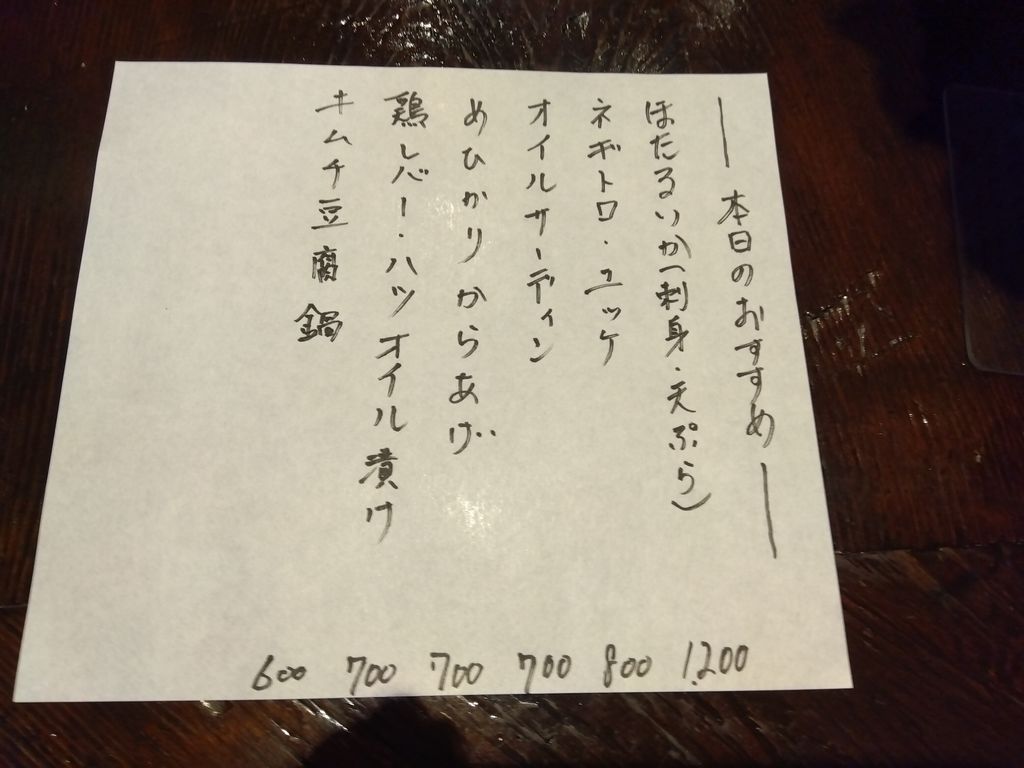 本日のおすすめ
ほたるいか(刺身・天ぷら)
ネギトロ・ユッケ
オイルサーディン
めひかりからあげ
鶏レバー・ハツオイル漬け
キムチ豆腐鍋
1,200
800
700
700
700
600